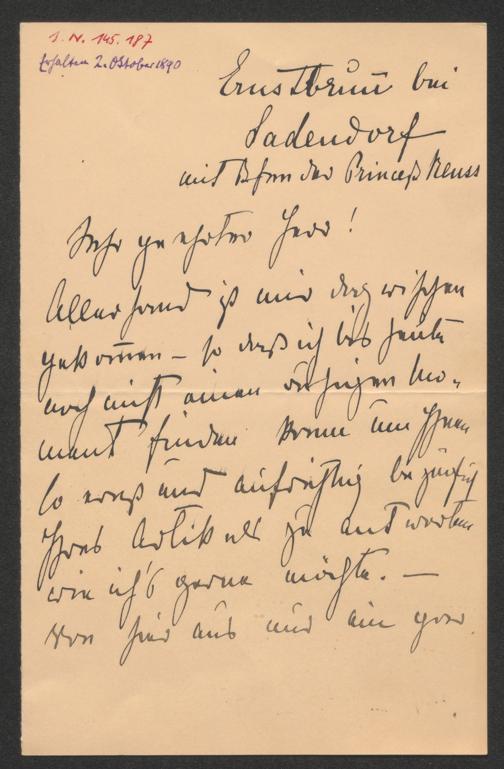 I. N. 145.187
Erhalten 2. Oktober 1890
Ernstbrunn bei
Ladendorf
mit der Princeß Reuss
Sehr geehrter Herr!
Allerhand ist mir dazwischen
gekommen – so daß ich bis heute
noch nicht einen ruhigen Mo-
ment finden konnte um Ihnen
so ernst und aufrichtig bezüglich
Ihres Artikels zu antworten
wie ich's gerne möchte. –
Von hier aus nur ein paar